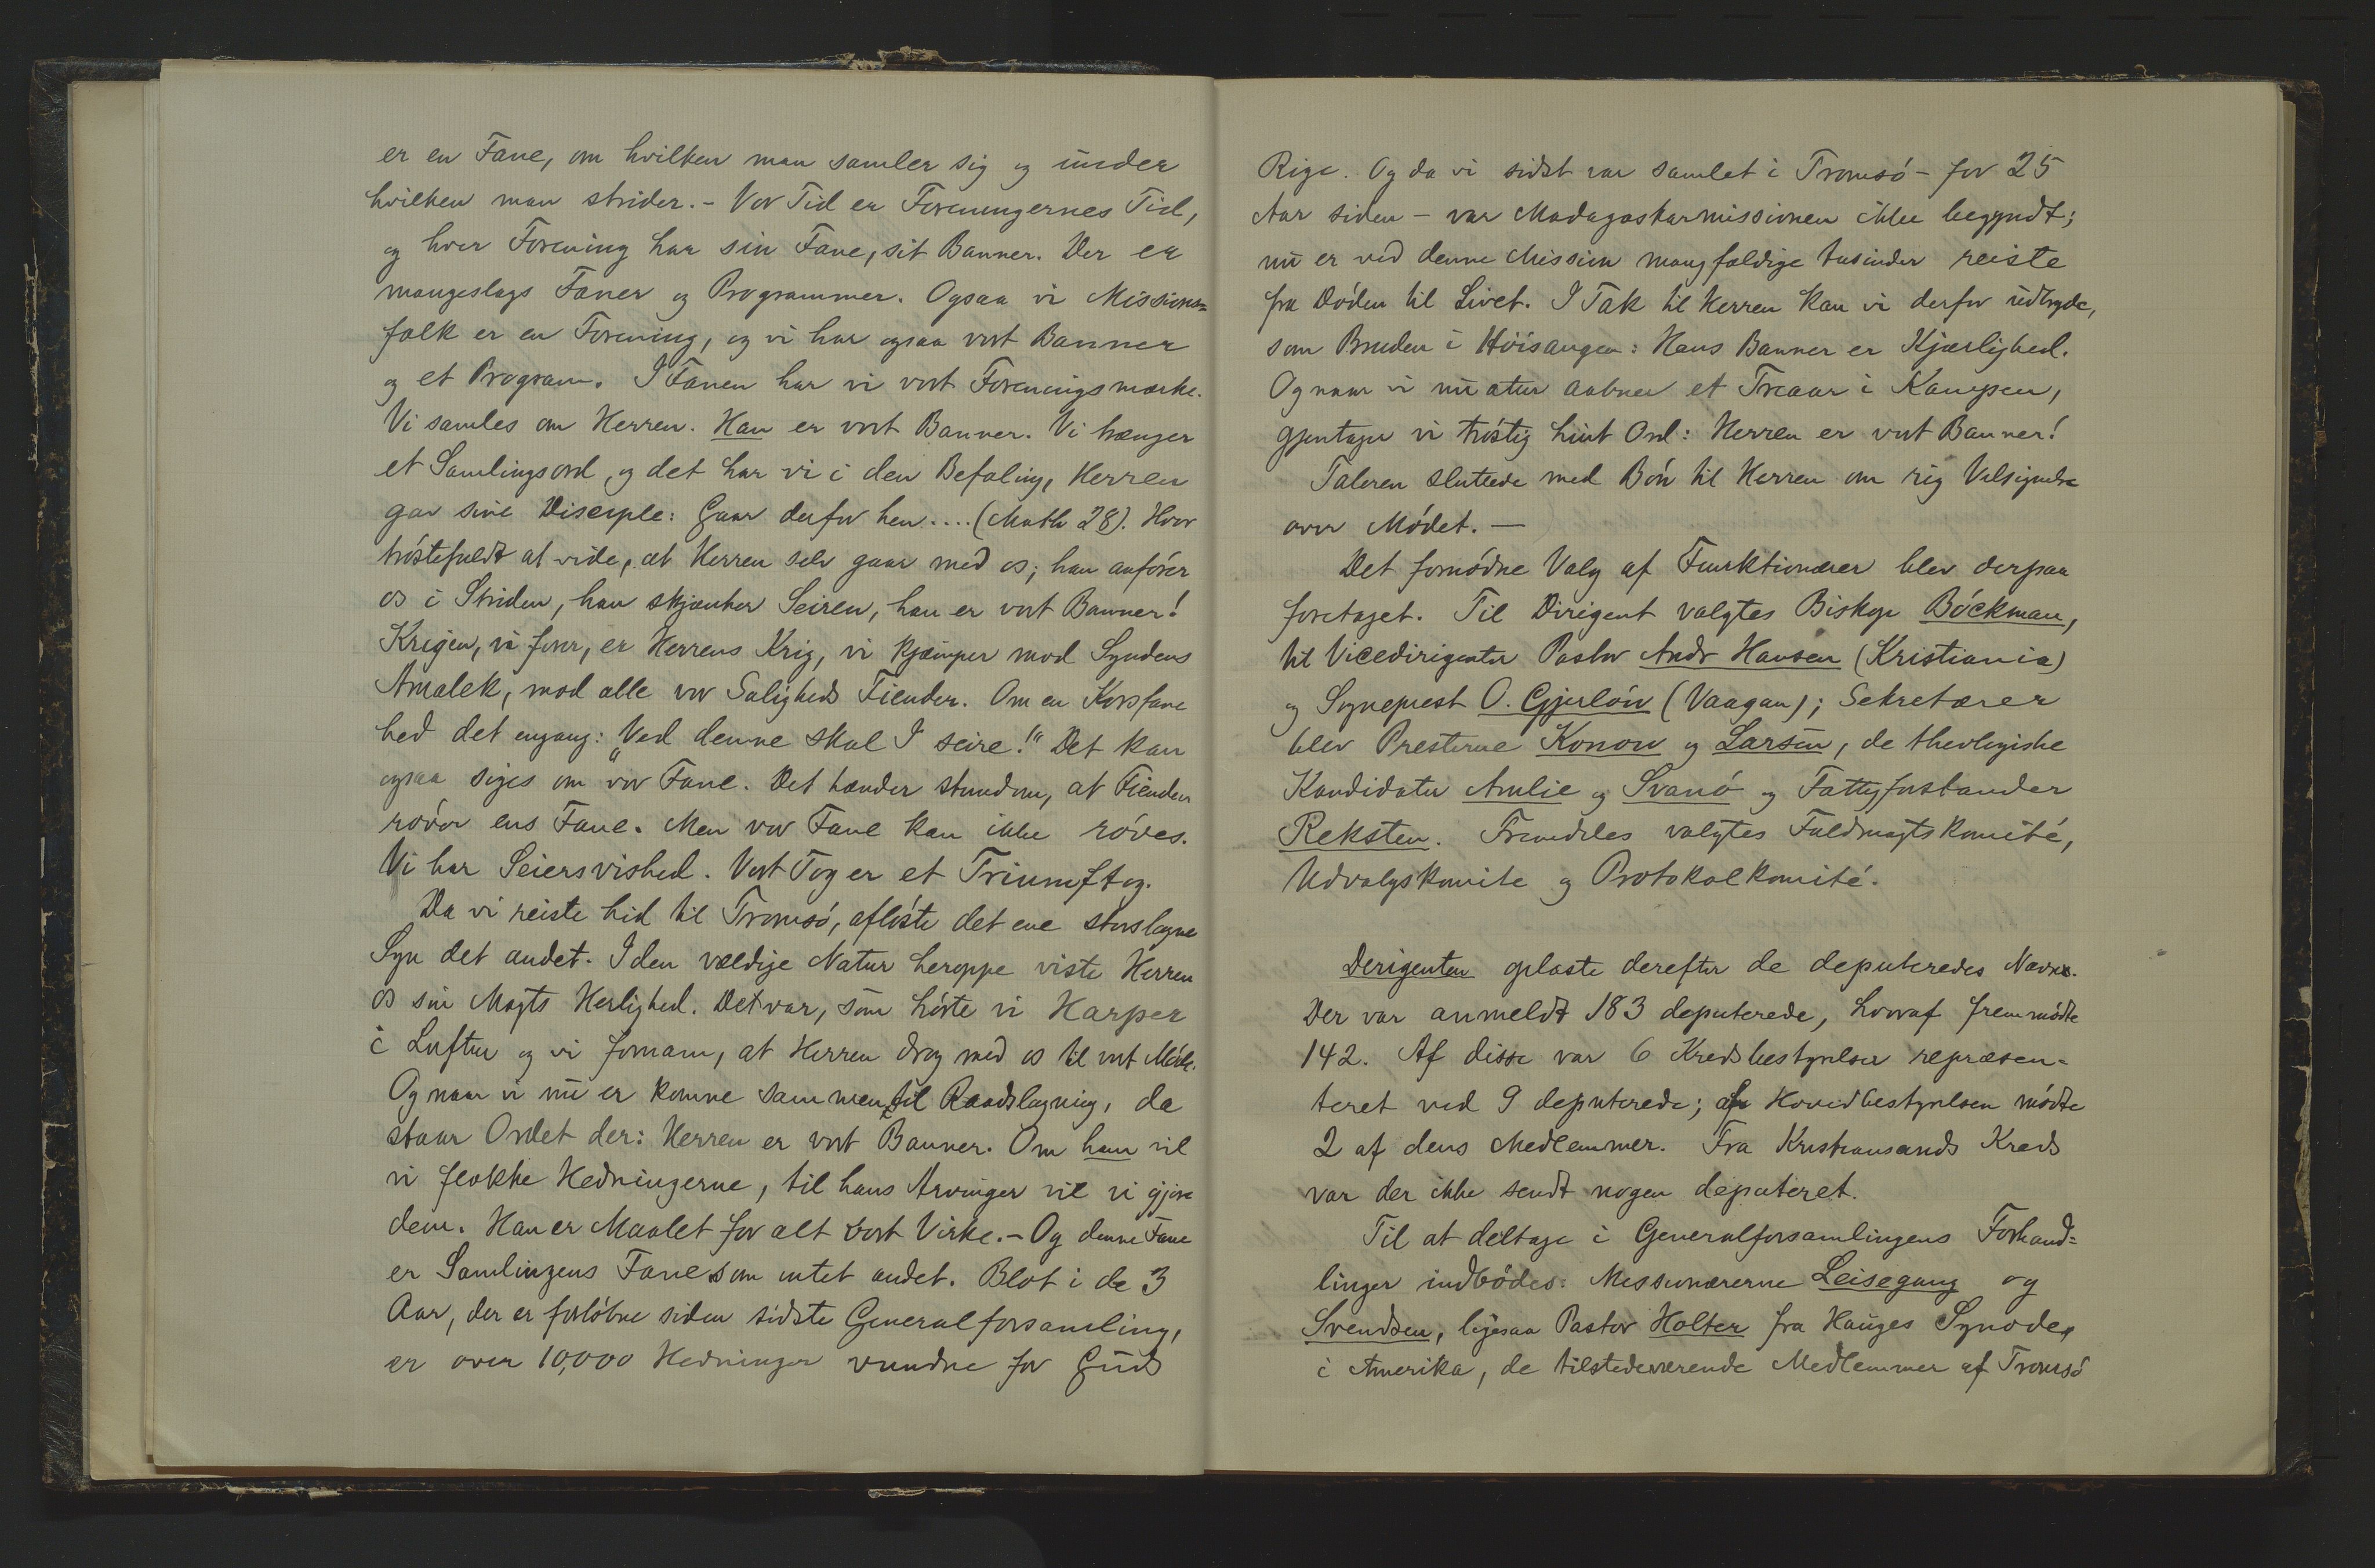 er en Fane, om hvilken man samler sig og under
hvilken man strider. – Vor Tid er Foreningernes Tid,
og hver Forening har sin Fane, sit Banner. Der er
mangeslags Faner og Programmer. Ogsaa vi Missions=
folk er en Forening, og vi har ogsaa vort Banner
og et Program. I Fanen har vi vort Foreningsmærke.
Vi samles om Herren. Han er vort Banner. Vi trænger
et Samlingsord, og det har vi i den Befaling, Herren
gav sine Disciple: Gaar derfor hen.... (Math 28). Hvor
tróstefuldt at vide, at Herren selv gaar med os; han anfórer
os i Striden, han skjænker Seiren, han er vort Banner!
Krigen, vi fører, er Herrens Krig, vi kjæmper mod Syndens
Amalek, mod alle vor Saligheds Fiender. Om en Korsfane
hed det engang: "Ved denne skal I seire!" Det kan
ogsaa siges om vor Fane. Det hænder stundom, at Fienden
róver ens Fane. Men vor Fane kan ikke róves.
Vi har Seiersvished. Vort Tog er et Triumftog.
Da vi reiste hid til Tromsó, aflóste det ene storslagne
Syn det andet. I den vældige Natur heroppe viste Herren
os sin Magts Herlighed. Det var, som hórte vi Harper
i Luften og vi fornam, at Herren drog med os til vort Móde.
Og naar vi nu er komne sammen til Raadslagning, da
staar Ordet der: Herren er vort Banner. Om ham vil
vi flokke Hedningerne, til hans Arvinger vil vi gjøre
dem. Han er Maalet for alt vort Virke. – Og denne Fane
er Samlingens Fane som intet andet. Blot i de 3
Aar, der er forlóbne siden sidste Generalforsamling,
er over 10,000 Hedninger vundne for Guds
Rige. Og da vi sidst var samlet i Tromsó – for 25
Aar siden – var Madagaskarmissionen ikke begyndt;
nu er ved denne Mission mangfoldige tusinder reiste
fra Dóden til Livet. I Tak til Herren kan vi derfor udbryde,
som Bruden i Hóisangen: Hans Banner er Kjærlighed.
Og naar vi nu atter aabner et Treaar i Kampen,
gjentager vi tróstig hint Ord: Herren er vort Banner!
Taleren sluttede med Bón til Herren om rig Velsignelse
over Módet. –
Det fornódne Valg af Funktionærer blev derpaa
foretaget. Til Dirigent valgtes Biskop Bóckman,
til Vicedirigenter Pastor Andr Hansen (Kristiania)
og Sognepræst O. Gjerlów (Vaagan); Sekretærer
blev Presterne Konow og Larsen, de theologiske
Kandidater Amlie og Svanó og Fattigforstander
Reksten. Fremdeles valgtes Fuldmagtskomité,
Udvalgskomite og Protokolkomité.
Derigenten oplæste derefter de deputeredes Navne.
Der var anmeldt 183 deputerede, hvoraf fremmódte
142. Af disse var 6 Kredsbestyrelser repræsen=
teret ved 9 deputerede; af Hovedbestyrelsen módte
2 af dens Medlemmer. Fra Kristiansands Kreds
var der ikke sendt nogen deputeret.
Til at deltage i Generalforsamlingens Forhand=
linger indbódes: Missionærerne Leisegang og
Svendsen, ligesaa Pastor Holter fra Hauges Synode,
i Amerika, de tilstedeværende Medlemmer af Tromsó